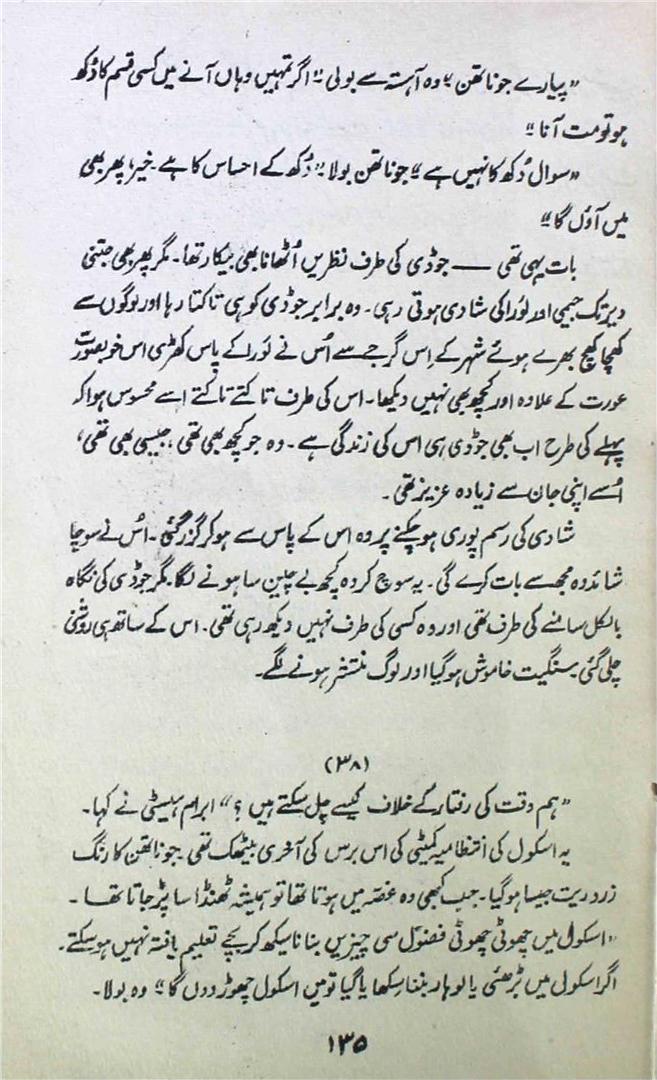 ”پیارے جوناتھن“ وہ آہستہ سے بولی ”اگر تمہیں وہاں آنے میں کسی قسم کا دُکھ
ہو تو مت آنا“
”سوال دُکھ کا نہیں ہے“ جوناتھن بولا ”دُکھ کے احساس کا ہے۔ خیر، پھر بھی
میں آؤں گا“
بات یہی تھی —— جوڈی کی طرف نظریں اُٹھانا بھی بیکار تھا۔ مگر پھر بھی جتنی
دیر تک جیمی اور لورا کی شادی ہوتی رہی۔ وہ برابر جوڈی کو ہی تاکتا رہا اور لوگوں سے
کھچا کھچ بھرے ہوئے شہر کے اِس گرجے سے اُس نے لورا کے پاس کھڑی اس خوبصورت
عورت کے علاوہ اور کچھ بھی نہیں دیکھا۔ اس کی طرف تاکتے تاکتے اسے محسوس ہوا کہ
پہلے کی طرح اب بھی جوڈی ہی اس کی زندگی ہے۔ وہ جو کچھ بھی تھی، جیسی بھی تھی،
اُسے اپنی جان سے زیادہ عزیز تھی۔
شادی کی رسم پوری ہو چکنے پر وہ اس کے پاس سے ہو کر گزر گئی۔ اُس نے سوچا
شائد وہ مجھ سے بات کرے گی۔ یہ سوچ کر وہ کچھ بے چین سا ہونے لگا۔ مگر جوڈی کی نگاہ
بالکل سامنے کی طرف تھی اور وہ کسی کی طرف نہیں دیکھ رہی تھی۔ اس کے ساتھ ہی روشنی
چلی گئی۔ سنگیت خاموش ہو گیا اور لوگ منتشر ہونے لگے۔
(۳۸)
”ہم وقت کی رفتار کے خلاف کیسے چل سکتے ہیں؟“ ابرام ہیسٹی نے کہا۔
یہ اسکول کی انتظامیہ کمیٹی کی اس برس کی آخری بیٹھک تھی۔ جوناتھن کا رنگ
زرد ریت جیسا ہو گیا۔ جب کبھی وہ غصّہ میں ہوتا تھا تو ہمیشہ ٹھنڈا سا پڑ جاتا تھا۔
”اسکول میں چھوٹی چھوٹی فضول سی چیزیں بنانا سیکھ کر بچے تعلیم یافتہ نہیں ہو سکتے۔
اگر اسکول میں بڑھئی یا لوہار بننا سکھایا گیا تو میں اسکول چھوڑ دوں گا“ وہ بولا۔
۱۳۵